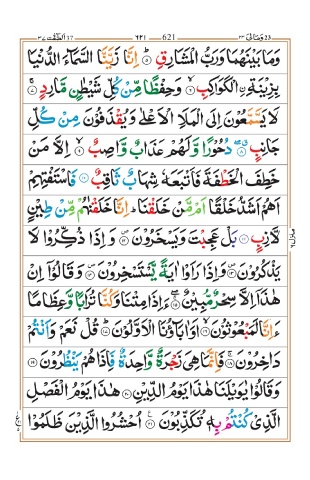 الصّٰٓفّٰت ٣٧ ٦٢١ 621 وما لی ٢٣
وَمَا بَيْنَهُمَا وَرَبُّ الْمَشَارِقِ ۝٥ اِنَّا زَيَّنَّا السَّمَآءَ الدُّنْيَا
بِزِيْنَةِ ࣙالْكَوَاكِبِ ۝٦ وَحِفْظًا مِّنْ كُلِّ شَيْطٰنٍ مَّارِدٍ ۝٧
لَا يَسَّمَّعُوْنَ اِلَى الْمَلَاِ الْاَعْلٰى وَيُقْذَفُوْنَ مِنْ كُلِّ
جَانِبٍ ۝٨ دُحُوْرًا وَّلَهُمْ عَذَابٌ وَّاصِبٌ ۝٩ اِلَّا مَنْ
خَطِفَ الْخَطْفَةَ فَاَتْبَعَهٗ شِهَابٌ ثَاقِبٌ ۝١٠ فَاسْتَفْتِهِمْ
اَهُمْ اَشَدُّ خَلْقًا اَمْ مَّنْ خَلَقْنَا ۭ اِنَّا خَلَقْنٰهُمْ مِّنْ طِيْنٍ
لَّازِبٍ ۝١١ بَلْ عَجِبْتَ وَيَسْخَرُوْنَ ۝١٢ وَاِذَا ذُكِّرُوْا لَا
يَذْكُرُوْنَ ۝١٣ وَاِذَا رَاَوْا اٰيَةً يَّسْتَسْخِرُوْنَ ۝١٤ وَقَالُوْٓا اِنْ
هٰذَآ اِلَّا سِحْرٌ مُّبِيْنٌ ۝١٥ ءَاِذَا مِتْنَا وَكُنَّا تُرَابًا وَّعِظَامًا
ءَاِنَّا لَمَبْعُوْثُوْنَ ۝١٦ اَوَاٰبَآؤُنَا الْاَوَّلُوْنَ ۝١٧ قُلْ نَعَمْ وَاَنْتُمْ
دَاخِرُوْنَ ۝١٨ فَاِنَّمَا هِيَ زَجْرَةٌ وَّاحِدَةٌ فَاِذَا هُمْ يَنْظُرُوْنَ ۝١٩
وَقَالُوْا يٰوَيْلَنَا هٰذَا يَوْمُ الدِّيْنِ ۝٢٠ هٰذَا يَوْمُ الْفَصْلِ
الَّذِيْ كُنْتُمْ بِهٖ تُكَذِّبُوْنَ ۝٢١ اُحْشُرُوا الَّذِيْنَ ظَلَمُوْا